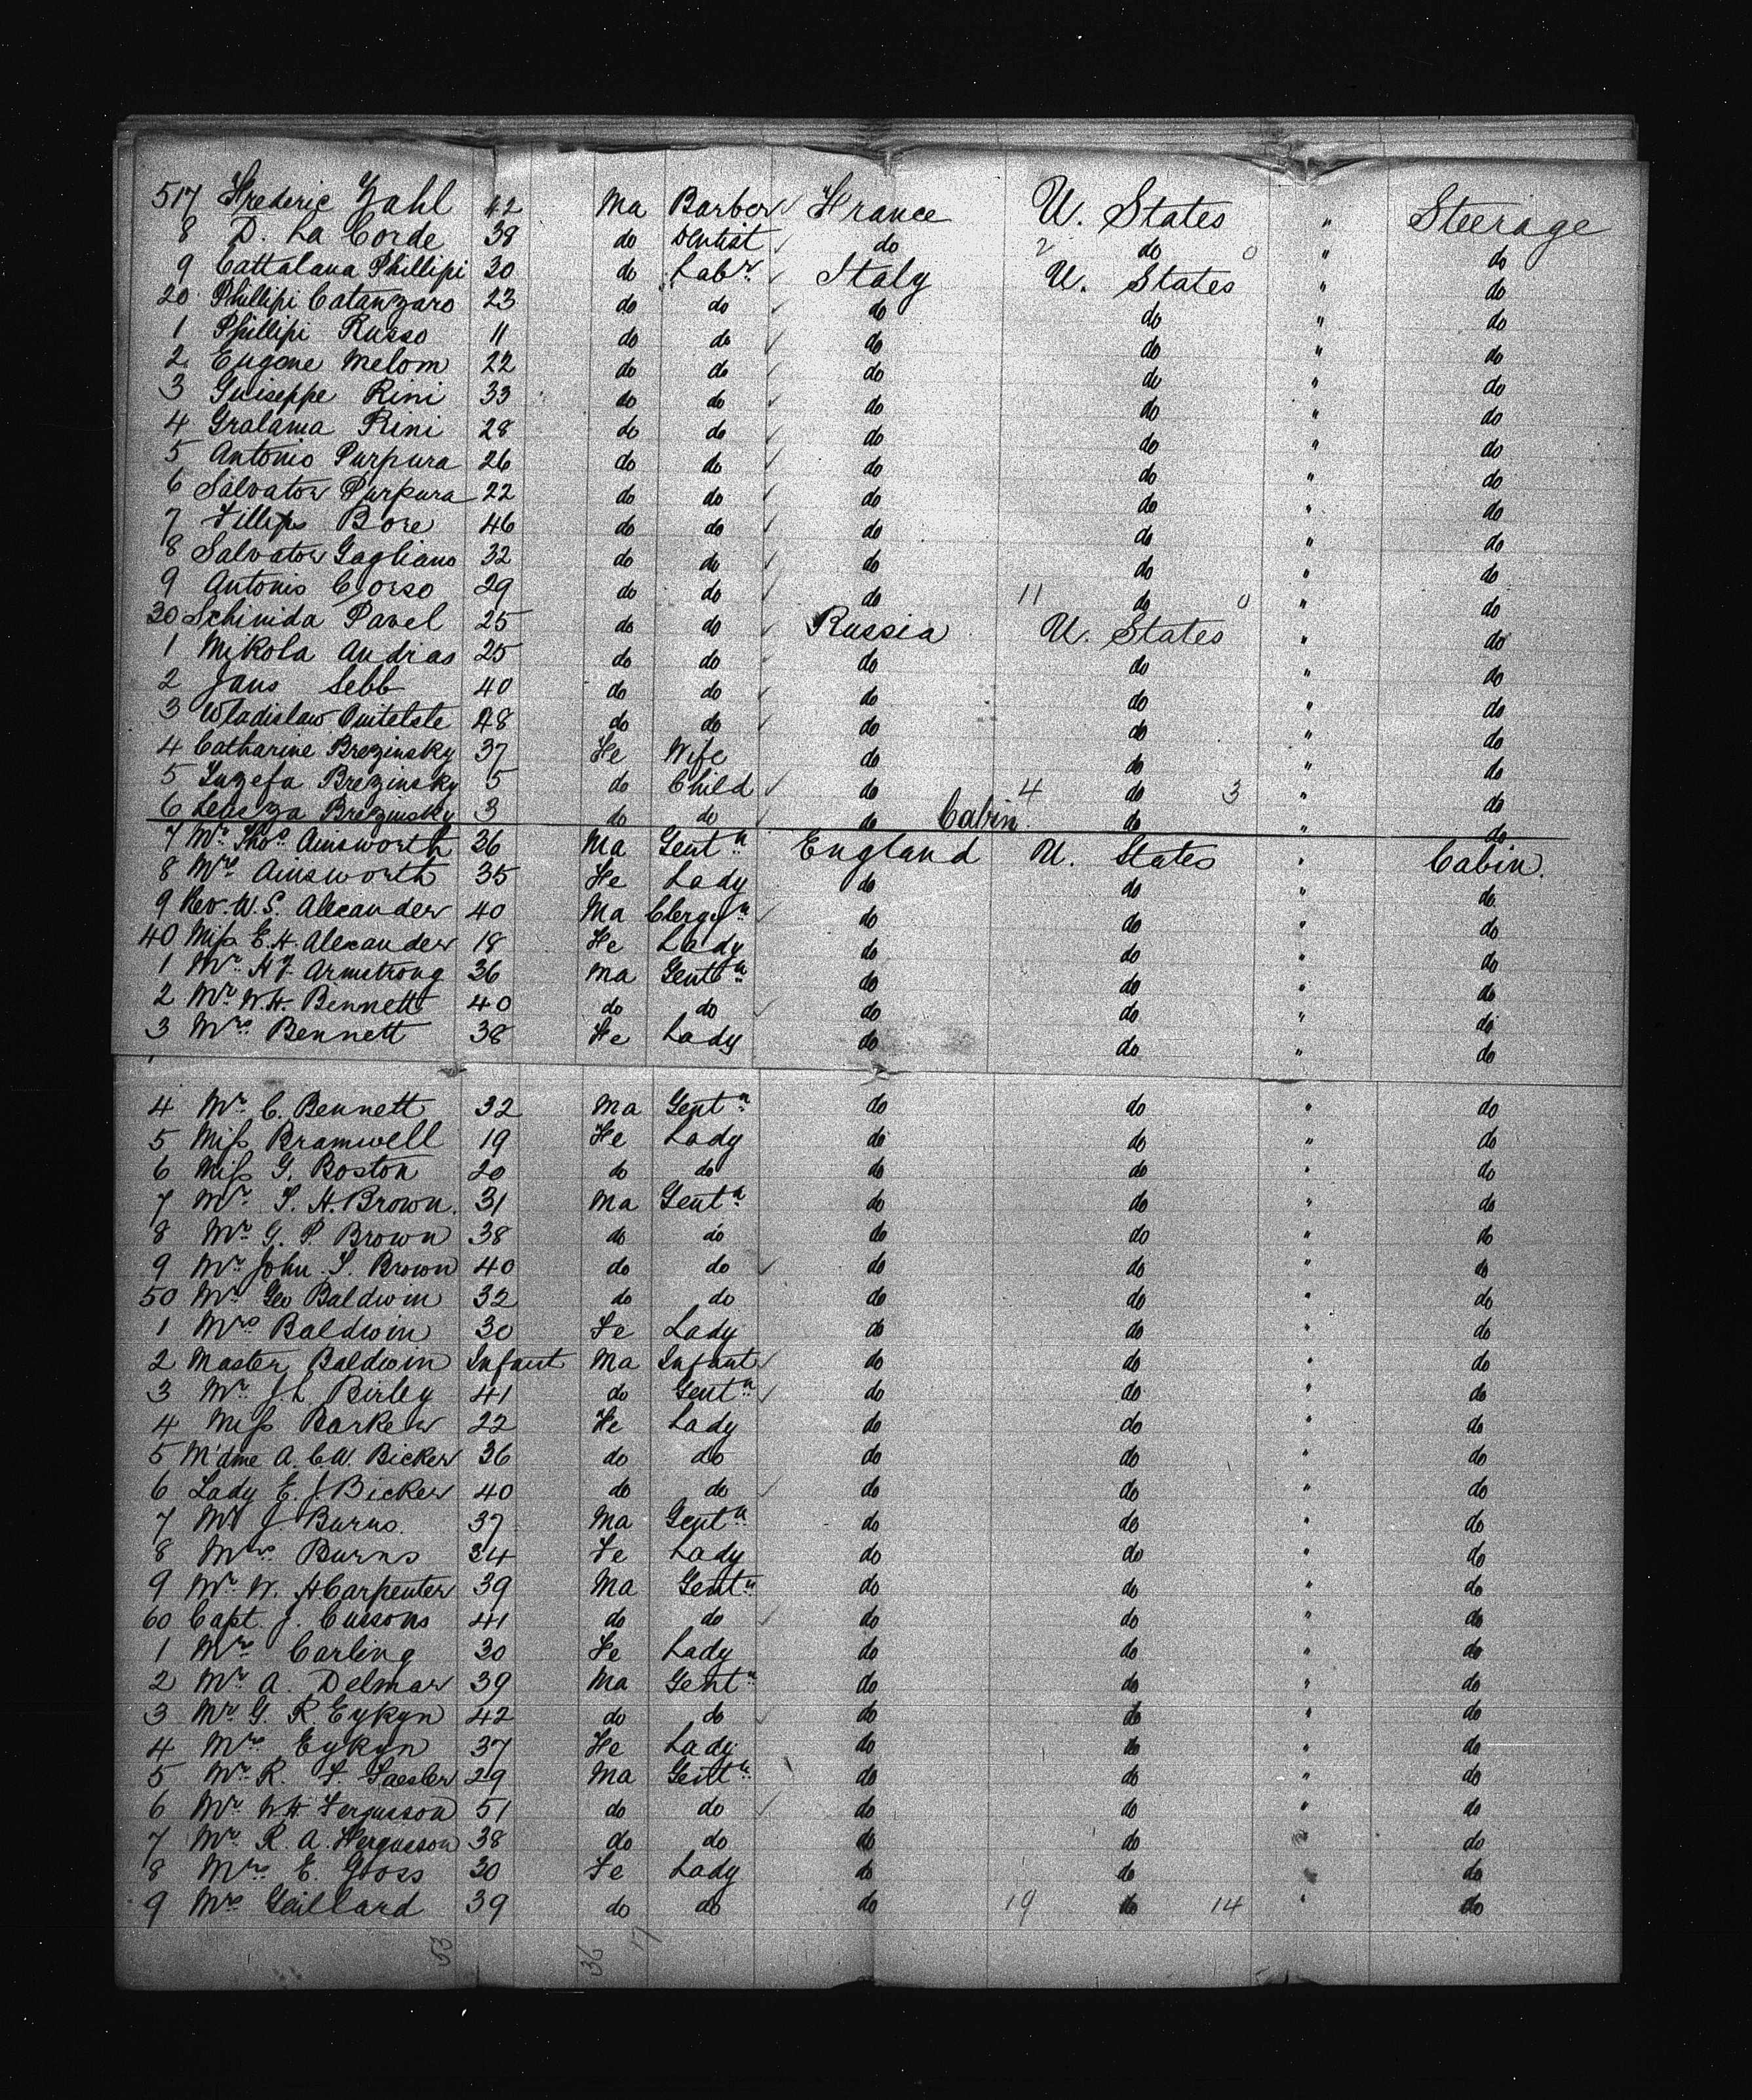 517 Frederic Zahl 42 Ma Barber France U. States " Steerage
8 D. La Corde 38 do Dentist do 2 do 0 " do
9 Cattalana Phillipi 30 do Labr. Italy U. States " do
20 Phillipi Catanzaro 23 do do do do " do
1 Phillipi Russo 11 do do do do " do
2 Eugene Melom 22 do do do do " do
3 Guiseppe Rini 33 do do do do " do
4 Gralama Rini 28 do do do do " do
5 Antonio Purpura 26 do do do do " do
6 Salvator Purpura 22 do do do do " do
7 Fillips Bore 46 do do do do " do
8 Salvator Gagliano 32 do do do do " do
9 Antonio Corso 29 do do do 11 do 0 " do
30 Schinida Pavel 25 do do Russia U. States " do
1 Mikola Andras 25 do do do do " do
2 Jans Sebb 40 do do do do " do
3 Wladislaw 48 do do do do " do
4 Catharine Brezinsky 37 Fe Wife do do " do
5 Juzefa Brezinsky 5 do Child do 4 do 3 " do
6 Brezinsky 3 do do do Cabin. do " do
7 Mr. Thos. Ainsworth 36 Ma Gentn England U. States " Cabin.
8 Mrs Ainsworth 35 Fe Lady do do " do
9 Rev. W. S. Alexander 40 Ma Clergyn do do " do
40 Miss E. H. Alexander 18 Fe Lady do do " do
1 Mr. H J. Armstrong 36 Ma Gentn do do " do
2 Mr W. H. Bennett 40 do do do do " do
3 Mrs Bennett 38 Fe Lady do do " do
4 Mr C. Bennett 32 Ma Gentn do do " do
5 Miss Bramwell 19 Fe Lady do do " do
6 Miss G. Boston 20 do do do do " do
7 Mr. S. H. Brown. 31 Ma Gentn do do " do
8 Mr. G. P. Brown 38 do do do do " do
9 Mr. John S. Brown 40 do do do do " do
50 Mr Geo Baldwin 32 do do do do " do
1 Mrs Baldwin 30 Fe Lady do do " do
2 Master Baldwin Infant Ma Infant do do " do
3 Mr. J. L Birley 41 do Gentn do do " do
4 Miss Barker 22 Fe Lady do do " do
5 M'dme A. C W. Bicker 36 do do do do " do
6 Lady E. J. Bicker 40 do do do do " do
7 Mr J. Burns. 37 Ma Gentn do do " do
8 Mrs Burns 34 Fe Lady do do " do
9 Mr W. H Carpenter 39 Ma Gentn do do " do
60 Capt. J. Cussons 41 do do do do " do
1 Mrs Carling 30 Fe Lady do do " do
2 Mr. A. Delmar 39 Ma Gentn do do " do
3 Mr G. R Eykyn 42 do do do do " do
4 Mrs Eykyn 37 Fe Lady do do " do
5 Mr R. F. 29 Ma Gentn do do " do
6 Mr. W H. Fergusson 51 do do do do " do
7 Mr R. A. Fergusson 38 do do do do " do
8 Mrs. E. Goss 30 Fe Lady do do " do
9 Mrs Gaillard 39 do do do 19 do 14 " do
53 36 17